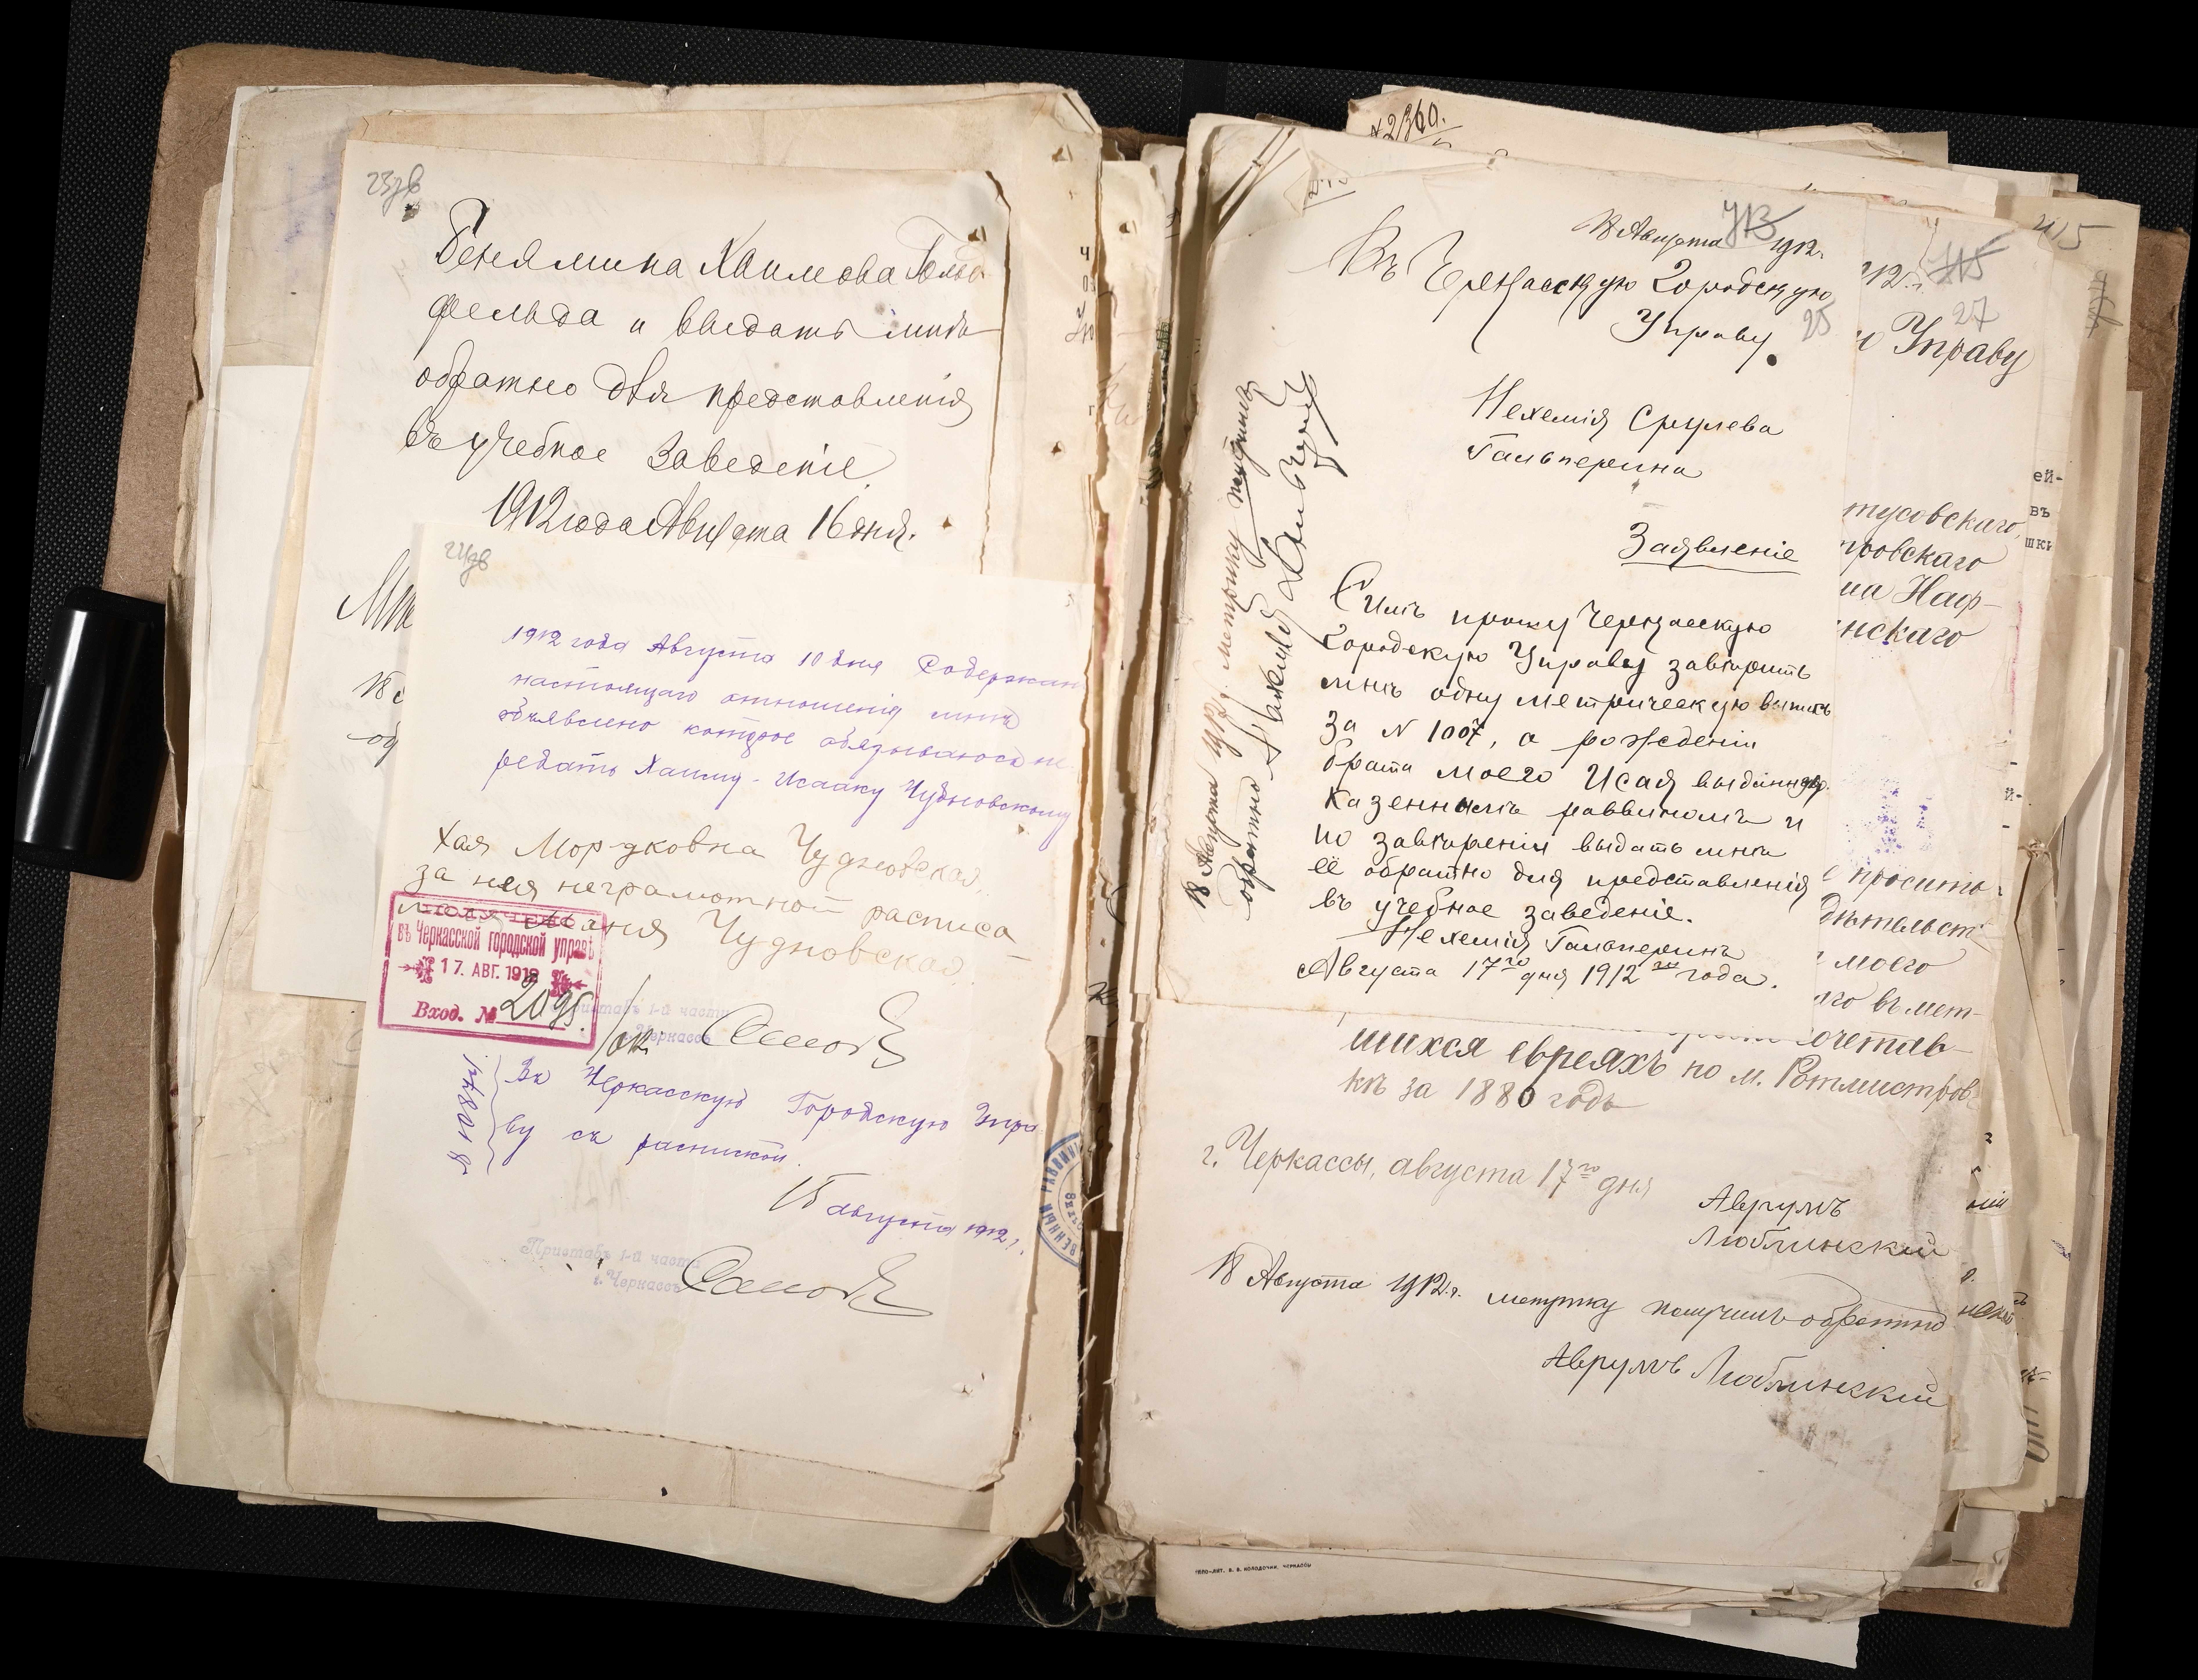 23об
Бенямина Хаимова Гольд
фельда и выдать мнѣ
обратно для представленія
въ учебное заведеніе.
1912 года Августа 16 дня.
24об
1912 года Августа 10 дня Содержан
настоящаго отношенія мнѣ
объявлено которое обязываюсь пе
редать Хаиму-Исааку Чудновскому
Хая Мордковна Чудновская
за нея неграмотной расписа
Чудновская
въ Черкасской городской управѣ
17. АВГ. 1912
Вход. № 2095.
Приставъ 1-й части
г. Черкассъ
№ 10871
Въ Черкасскую Городскую Упра
ву съ распиской.
15 августа 1912 г.
Приставъ 1-й части
г. Черкассъ
18 Августа 1912 г.
713
Въ Черкасскую Городскую
Управу.
25
Нехемія Срулева
Гальперина
Заявленіе
Симъ прошу Черкасскую
Городскую Управу завѣрить
мнѣ одну метрическую выпись
за N 1007, о рожденіи
брата моего Исая выданную
казеннымъ раввиномъ и
по завѣреніи выдать мнѣ
её обратно для представленія
въ учебное заведеніе.
Нехемія Гальперинъ
Августа 17го дня 1912го года.
18 Августа 1912 г. метрику получилъ
обратно
2360.
12 г.
715
27
Управу
415
тусовскаго,
тровскаго
на Наф-
нскаго
просить
дѣтельст
моего
го въ мет-
очетав-
шихся евреяхъ по м. Ротмистров-
кѣ за 1880 годъ
г. Черкассы, августа 17го дня
Аврумъ
Люблинскій
18 Августа 1912 г. метрику получилъ обратно
Аврумъ Люблинскій
ТИПО-ЛИТ. В. В. КОЛОДОЧКИ, ЧЕРКАССЫ